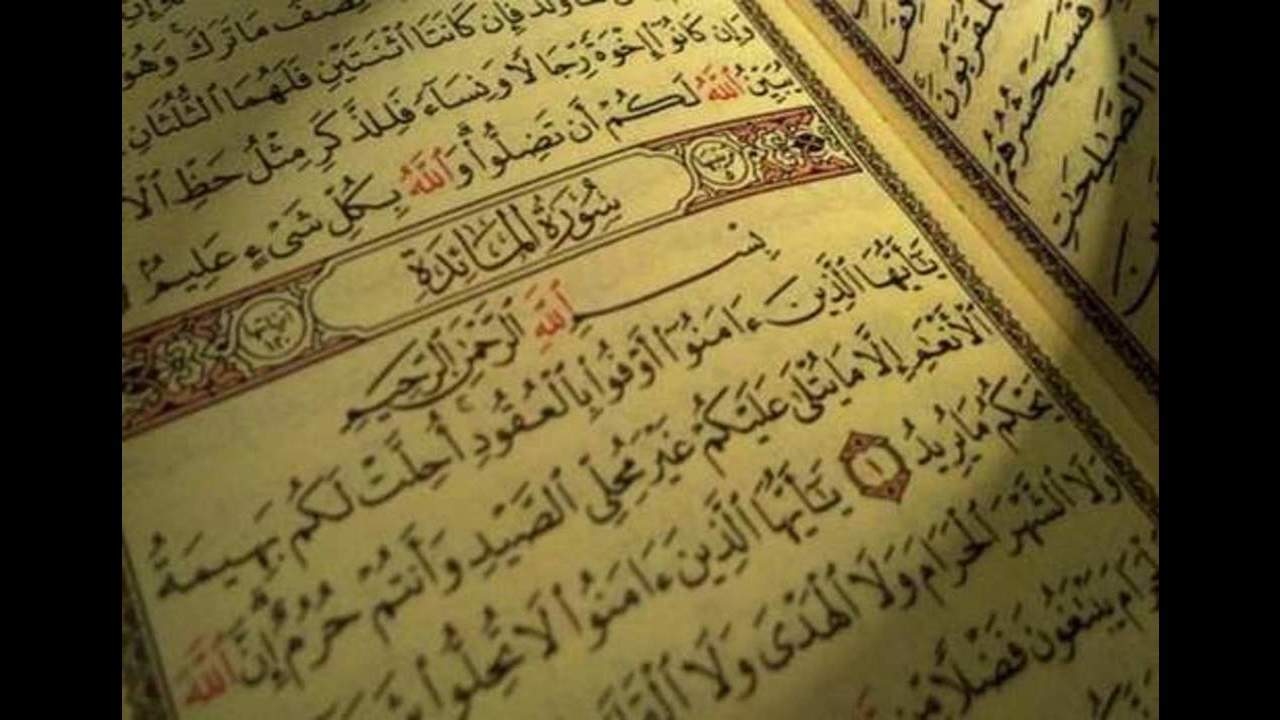 نصف ما ترك وهو
فإن كانتا ٱثنتين فلهما ٱلثلثان
وإن كانوٓا۟ إخوة رجالا ونسآء فللذكر مثل حظ
يُبَيِّنُ ٱللَّهُ لَكُمْ أَن تَضِلُّوا۟ وَٱللَّهُ بِكُلِّ شَىْءٍ عَلِيمٌۢ
سُورَةُ المَائدَة
بِسْمِ ٱللَّهِ ٱلرَّحْمَٰنِ ٱلرَّحِيمِ
يَٰٓأَيُّهَا ٱلَّذِينَ ءَامَنُوٓا۟ أَوْفُوا۟ بِٱلْعُقُودِ أُحِلَّتْ لَكُم بَهِيمَةُ
ٱلْأَنْعَٰمِ إِلَّا مَا يُتْلَىٰ عَلَيْكُمْ غَيْرَ مُحِلِّى ٱلصَّيْدِ وَأَنتُمْ حُرُمٌ إِنَّ ٱللَّهَ
يَحْكُمُ مَا يُرِيدُ ١ يَٰٓأَيُّهَا ٱلَّذِينَ ءَامَنُوا۟ لَا تُحِلُّوا۟
وَلَا ٱلشَّهْرَ ٱلْحَرَامَ وَلَا ٱلْهَدْىَ وَلَا
يَبْتَغُونَ فَضْلًا مِّن
المقربون
فسيحشرهم
ٱلصَّٰلِحَٰتِ